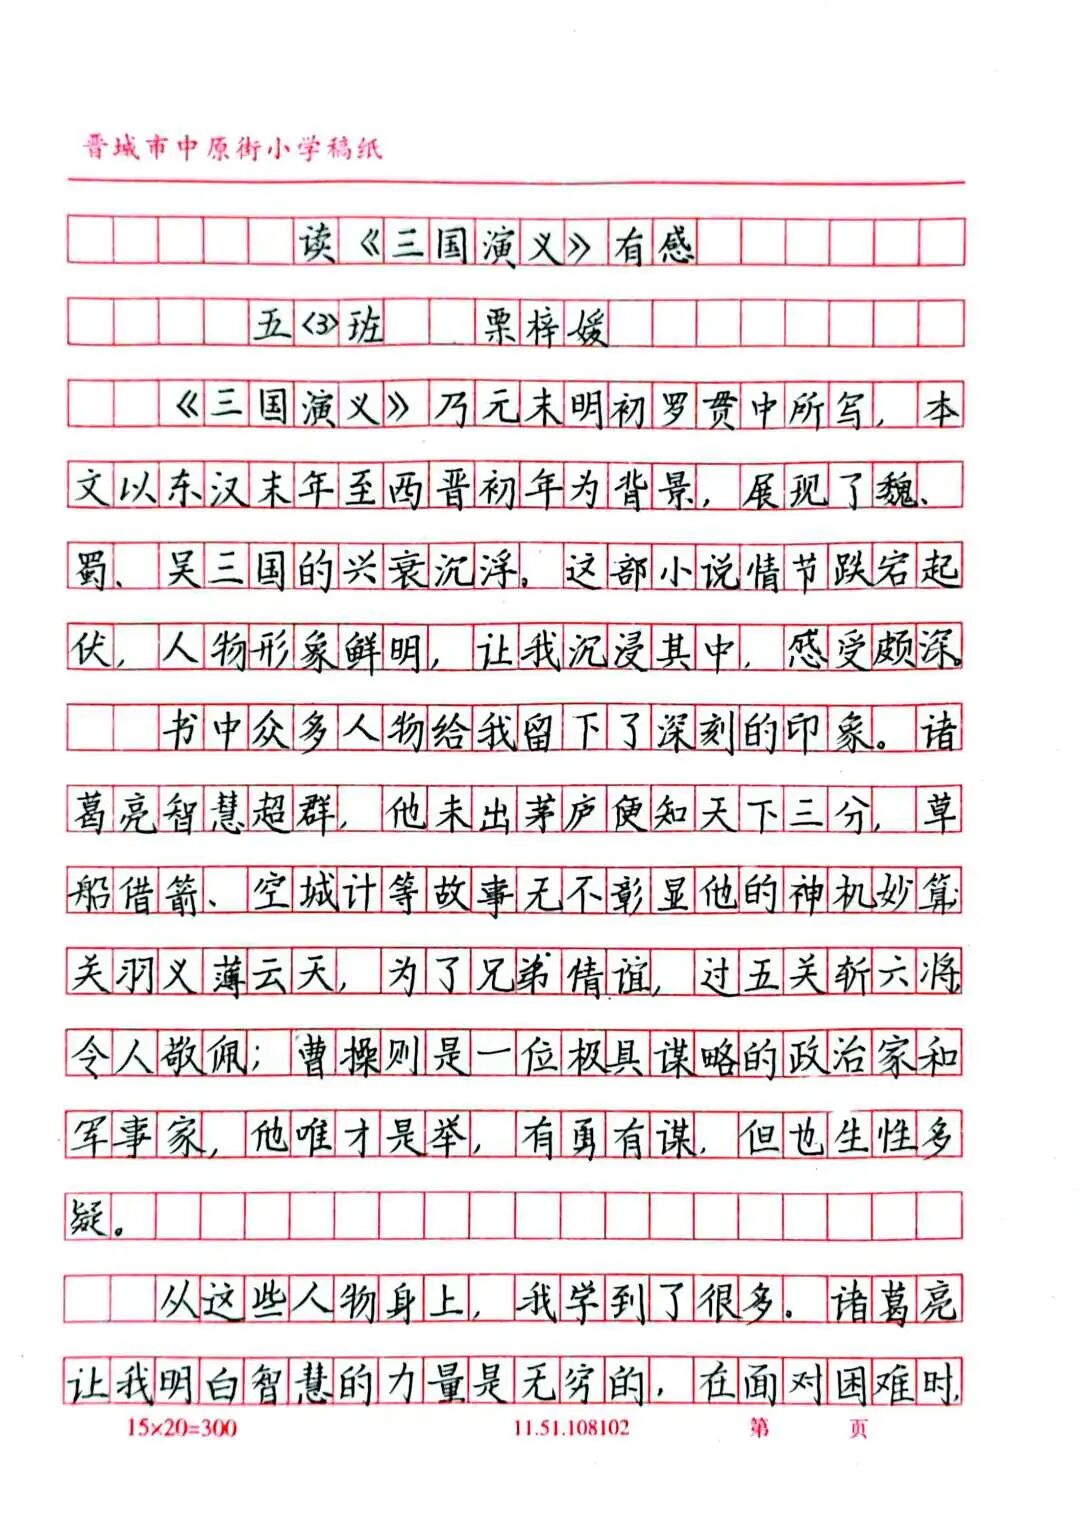 晋城市中原街小学稿纸
读《三国演义》有感
五(3)班 栗梓媛
《三国演义》乃元末明初罗贯中所写，本
文以东汉末年至西晋初年为背景，展现了魏、
蜀、吴三国的兴衰沉浮。这部小说情节跌宕起
伏，人物形象鲜明，让我沉浸其中，感受颇深。
书中众多人物给我留下了深刻的印象。诸
葛亮智慧超群，他未出茅庐便知天下三分，草
船借箭、空城计等故事无不彰显他的神机妙算；
关羽义薄云天，为了兄弟情谊，过五关斩六将，
令人敬佩；曹操则是一位极具谋略的政治家和
军事家，他唯才是举，有勇有谋，但也生性多
疑。
从这些人物身上，我学到了很多。诸葛亮
让我明白智慧的力量是无穷的，在面对困难时，
15×20=300 11.51.108102 第 页